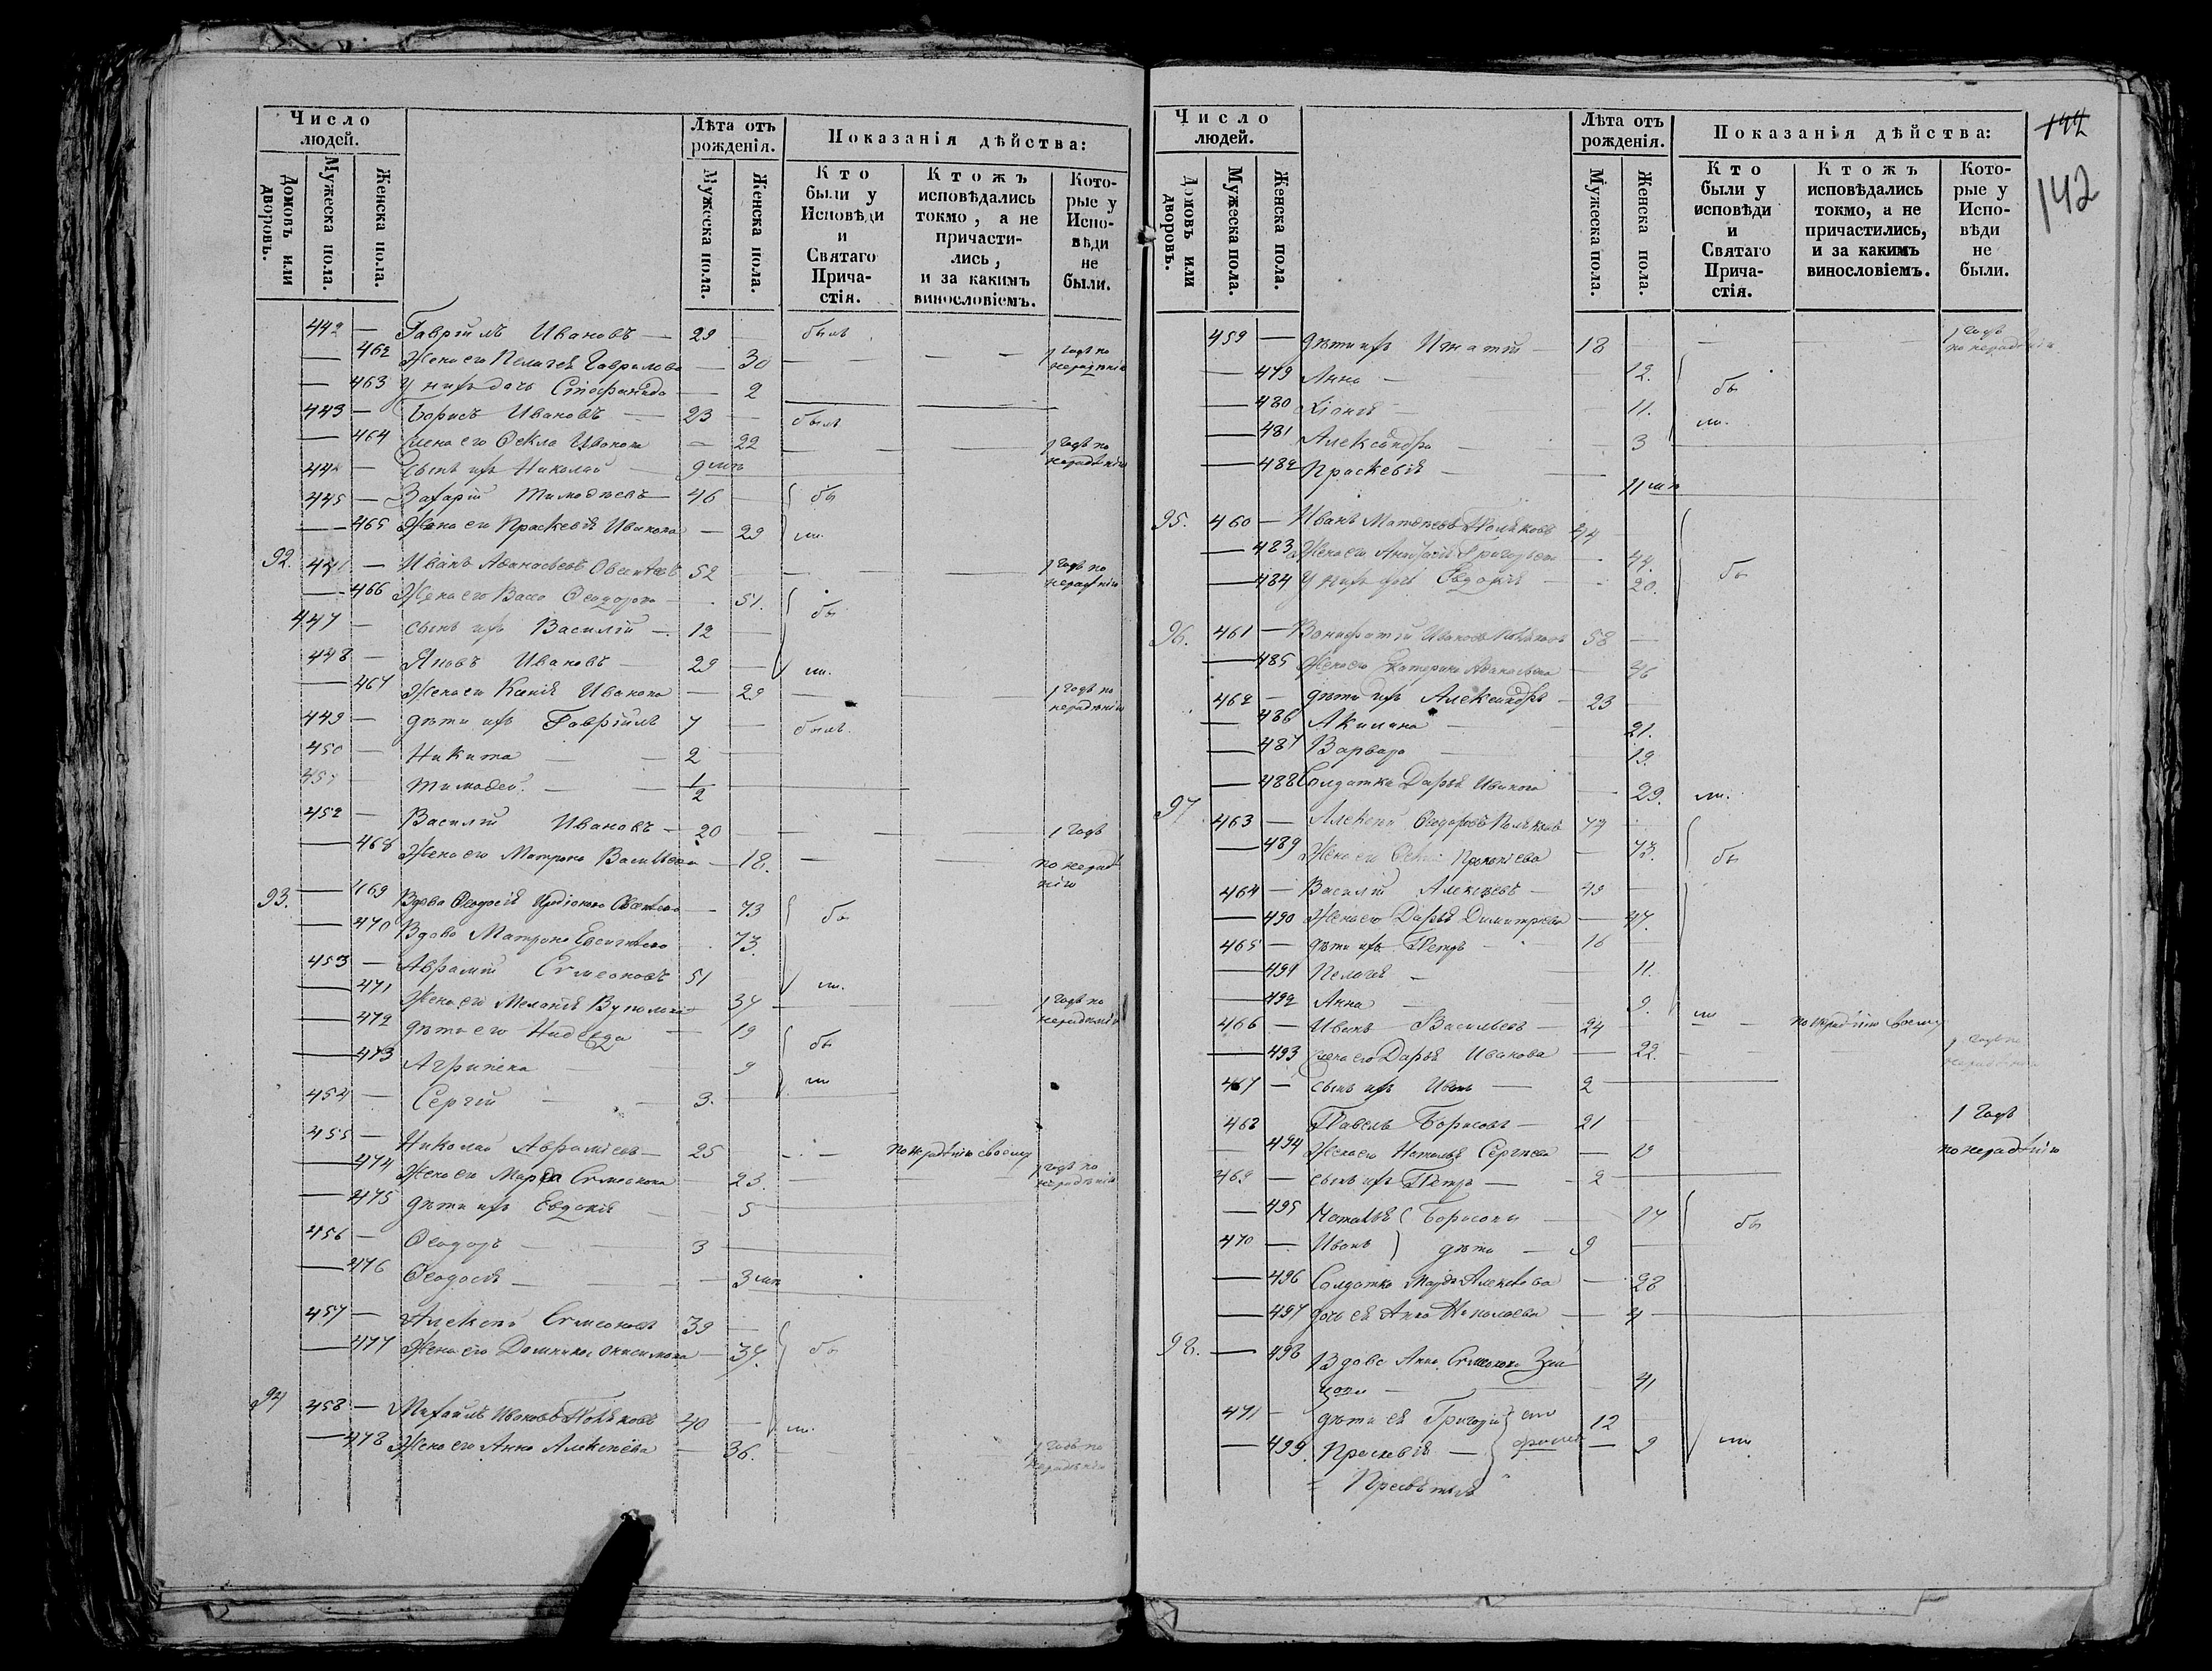 Число людей.
Лѣта отъ рожденія.
Показанія дѣйства:
Домовъ или дворовъ.
Мужеска пола.
Женска пола.
Мужеска пола.
Женска пола.
Кто были у Исповѣди и Святаго Причастія.
Ктожъ исповѣдались токмо, а не причастились, и за какимъ винословіемъ.
Которые у Исповѣди не были.
442 — Гавріилъ Ивановъ — 29 былъ
— 462 Жена его Пелагея Гаврилова — 30 — — — 1 годъ по нерадѣнію
— 463 У нихъ дочь Стефанида — 2
443 — Борисъ Ивановъ — 23 — былъ
— 464 Жена его Ѳекла Иванова — 22 — — — 1 годъ по нерадѣнію
444 — Сынъ ихъ Николай — 9 мцъ
445 — Захарій Тимоѳеевъ — 46 — бы
— 465 Жена его Праскевія Иванова — 29 ли.
92. 446 — Иванъ Аѳанасьевъ 52 — — — 1 годъ по нерадѣнію
— 466 Жена его Васса Ѳеодорова — 51. бы
447 — сынъ ихъ Василій — 12 —
448 — Яковъ Ивановъ — 29 — ли.
— 467 Жена его Ксенія Иванова — 29 — — — 1 годъ по нерадѣнію
449 — дѣти ихъ Гавріилъ 7 — былъ.
450 — Никита — — 2 —
451 — Тимоѳей. — — 1/2
452 — Василій Ивановъ — 20 — — — 1 годъ
— 468 Жена его Матрона Васильева — 18. — — по нерадѣнію
93. — 469 Вдова Ѳеодосія — 73 бы
— 470 Вдова Матрона — 73.
453 — Аврамій Симеоновъ 51 — ли.
— 471 Жена его Меланія — 37 — — — 1 годъ по нерадѣнію
— 472 дѣти его Надежда — 19 бы
— 473 Агрипена — — 9 ли
454 — Сергій — — 3. —
455 — Николай Авраміевъ — 25 — — по нерадѣнію своему
— 474 Жена его Марѳа Симеонова — 23. — — — 1 годъ по нерадѣнію
— 475 дѣти ихъ Евдокія — — 5
456 — Ѳеодоръ — — 3
— 476 Ѳеодосія — — — 3 мцъ
457 — Алексѣй Симеоновъ 39 —
— 477 Жена его Домникія Онисимова — 37. бы
94 458 — Михаилъ Ивановъ Поляковъ 40 — ли.
— 478 Жена его Анна Алексѣева — 36. — — 1 годъ по нерадѣнію
144
142
Число людей.
Лѣта отъ рожденія.
Показанія дѣйства:
Домовъ или дворовъ.
Мужеска пола.
Женска пола.
Мужеска пола.
Женска пола.
Кто были у исповѣди и Святаго Причастія.
Ктожъ исповѣдались токмо, а не причастились, и за какимъ винословіемъ.
Которые у Исповѣди не были.
459 — дѣти ихъ Игнатій — 18 — — — 1 годъ по нерадѣнію
— 479 Анна — — 12. бы
— 480 — 11. ли.
— 481 Александра — — 3
— 482 Праскевія — — 11 мцъ
95. 460 — Иванъ Матвѣевъ Поляковъ 44 —
— 483 Жена его Григорьева — 44. бы
— 484 У нихъ дочь Евдокія — 20.
96. 461 — Вонифатій Ивановъ Поляковъ 58 —
— 485 Жена его Екатерина Аѳанасьева — 46
462 — дѣти ихъ Александръ — 23 —
— 486 Акилина — — 21.
— 487 Варвара — — 19.
— 488 Солдатка Дарья Иванова — 29. ли.
97 463 — Алексѣй Ѳеодоровъ Поляковъ 79 —
— 489 Жена его Прокопіева — 73. бы
464 — Василій Алексѣевъ — 49 —
— 490 Жена его Дарья Димитріева — 47.
465 — дѣти ихъ Петръ — 16 —
— 491 Пелагія — 11.
— 492 Анна — — 9. ли
466 — Иванъ Васильевъ — 24 — — по нерадѣнію своему
— 493 Жена его Дарья Иванова — 22. — — 1 годъ по нерадѣнію
467 — сынъ ихъ Иванъ — 2
468 Павелъ Борисовъ — 21 — 1 годъ
— 494 Жена его Наталья Сергѣева — 19 по нерадѣнію
469 — сынъ ихъ Петръ — 2
— 495 Наталья Борисовы — 17 бы
470 — Иванъ дѣти — 9 —
— 496 Солдатка Марѳа Алексѣева — 28
— 497 дочь ея Анна Николаева — 4
98. — 498 Вдова Анна Симеонова — 41
471 — дѣти ея Григорій 12 —
— 499. Праскевія — — 9 ли